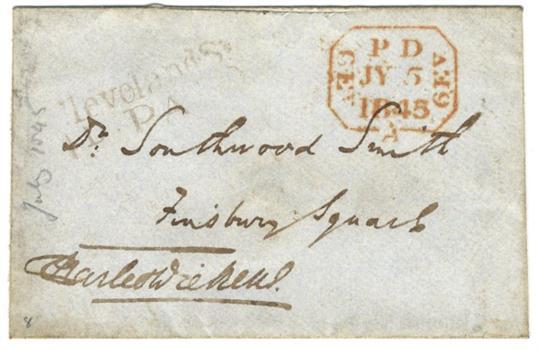 Cleveland St
P.P.
P D
JY 5
1845
A
GEV
GEV
July 1845
Dr. Southwood Smith
Finsbury Square
Charles Dickens.
8